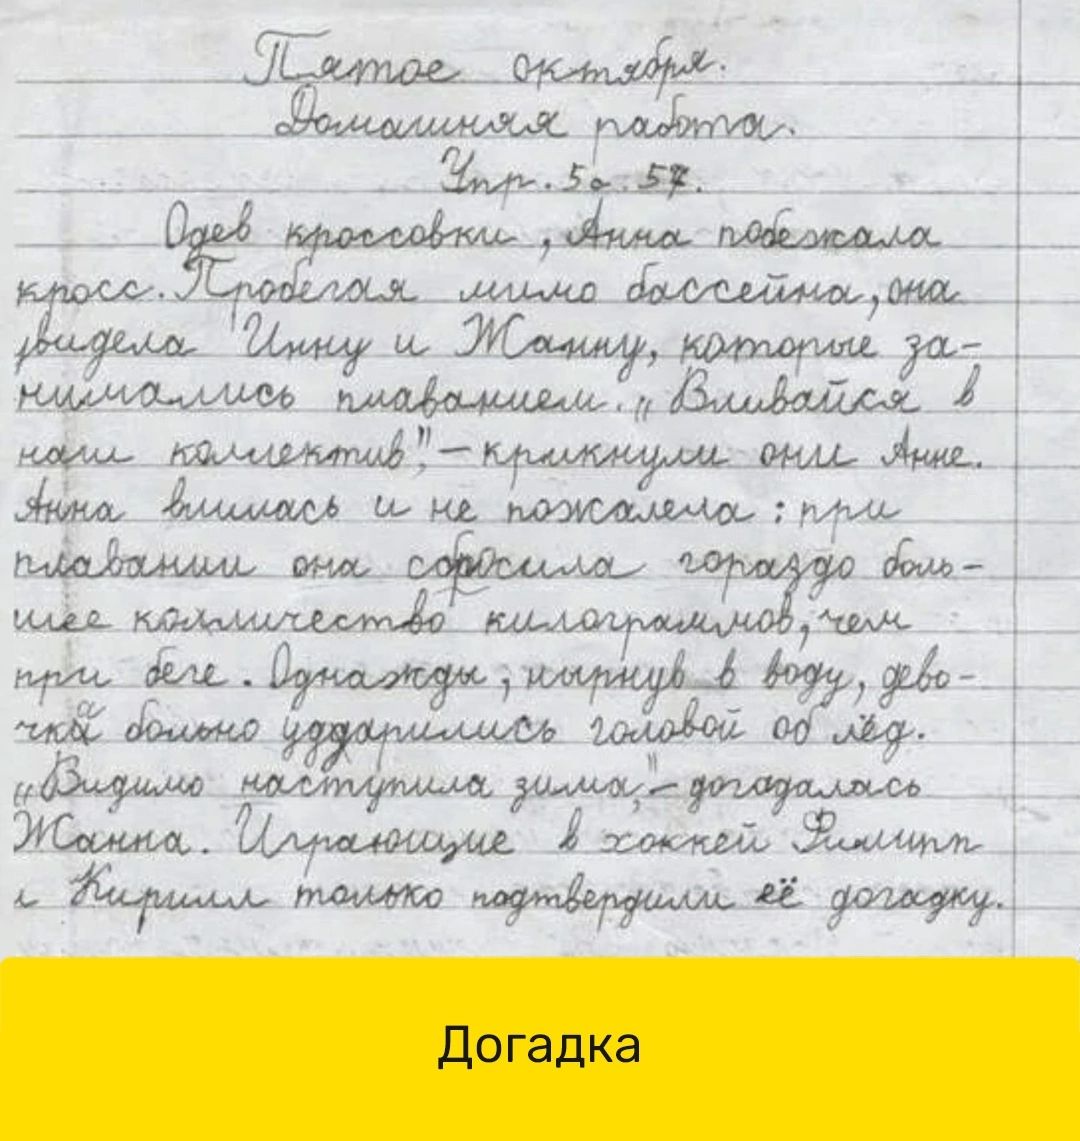 Пятое октября.
Домашняя работа.
Упр. 5 с. 57.
Одев кроссовки, Анна побежала
кросс. Пробегая мимо бассейна, она
увидела Инну и Жанну, которые за-
нимались плаванием. „Вливайся в
наш коллектив", – крикнули они Анне.
Анна влилась и не пожалела: при
плавании она сбросила гораздо боль-
шее колличество килограммов, чем
при беге. Однажды, нырнув в воду, дево-
чка больно уддарились головой об лёд.
„Видимо наступила зима," – догадалась
Жанна. Играющие в хоккей Филипп
и Кирилл только подтвердили её догадку.
Догадка